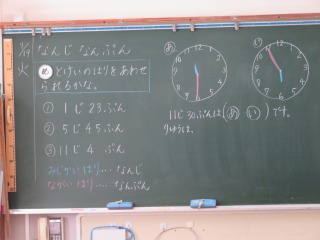 なんじ なんぷん
火
め とけいのはりをあわせ
られるかな。
① 1じ23ぷん
② 5じ45ふん
③ 11じ4 ぷん
みじかいはり……なんじ
ながいはり……なんぷん
あ
い
11じ30ぷんは(あ い)です。
りゆうは、